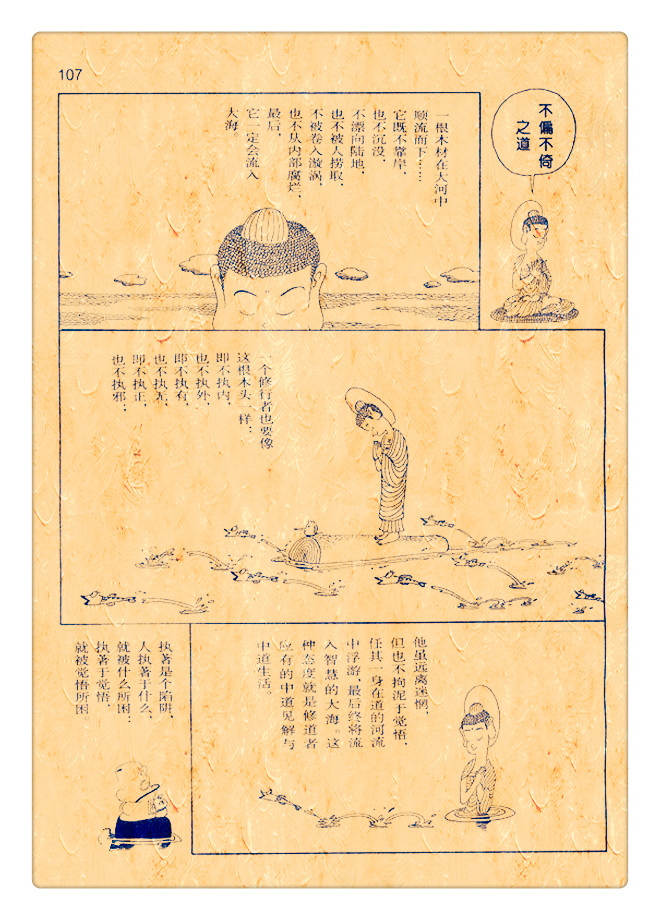 107
不偏不倚
之道
一根木材在大河中
顺流而下……
它既不靠岸,
也不沉没,
不漂向陆地,
也不被人捞取,
不被卷入漩涡,
也不从内部腐烂,
最后,
它一定会流入
大海。
一个修行者也要像
这根木头一样:
即不执内,
也不执外,
即不执有,
也不执无,
即不执正,
也不执邪;
他虽远离迷惘,
但也不拘泥于觉悟,
任其一身在道的河流
中浮游、最后终将流
入智慧的大海。这
种态度就是修道者
应有的中道见解与
中道生活。
执著是个陷阱,
人执著于什么,
就被什么所困;
执著于觉悟,
就被觉悟所困。